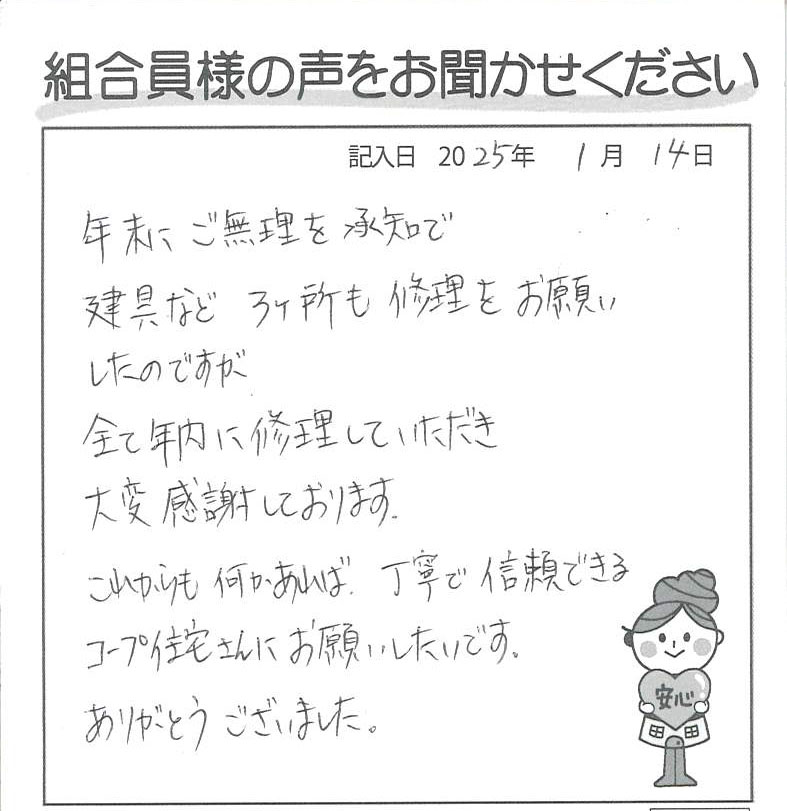 組合員様の声をお聞かせください
記入日 2025年 1月 14日
年末に ご無理を 承知で
建具など 3ヶ所も 修理を お願い
したのですが
全て年内に修理していただき
大変感謝しております.
これからも 何かあれば. 丁寧で 信頼できる
コープ住宅さんに お願いしたいです。
ありがとう ございました。
安心